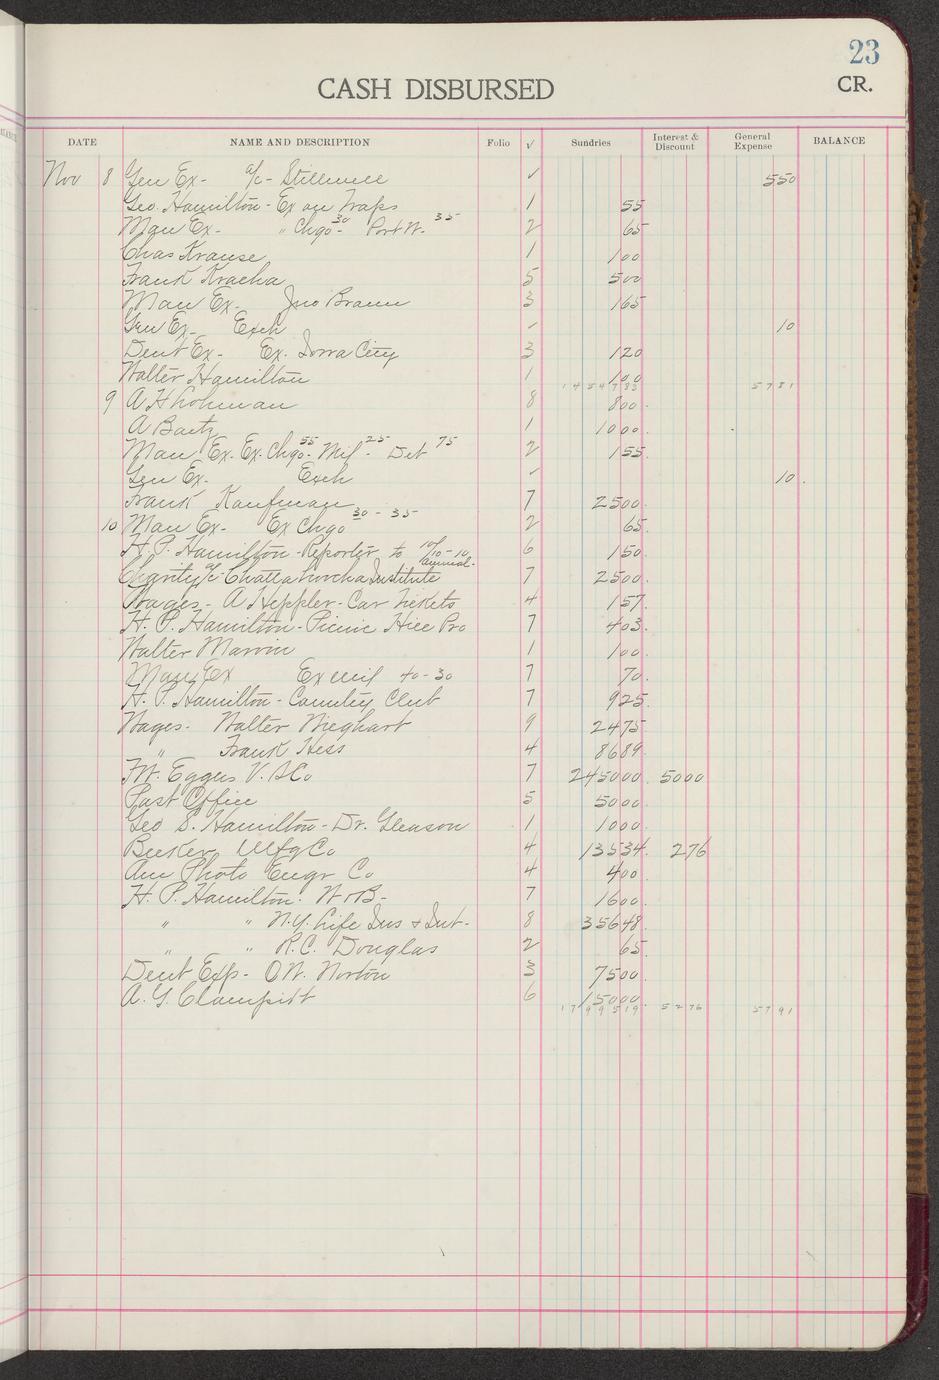 23
CASH DISBURSED
CR.
DATE NAME AND DESCRIPTION Folio √ Sundries Interest & Discount General Expense BALANCE
Nov 8 Gen Ex- a/c- Stillwell ✓ 550
Geo. Hamilton- Ex on Traps 1 55
Man Ex- " Chgo- 30 Port W. 35 2 65
Chas Krause 1 100
Frank Kracha 5 500
Man Ex- Jno Braun 3 165
Gen Ex- Exch ✓ 10
Dent Ex- Ex. Iowa City 3 120
Walter Hamilton 1 100
1454783 5781
9 A H Lohman 8 800
A Bartz 1 1000
Man Ex- Ex- Chgo- 55 Mil- 25 Det 75 2 155
Gen Ex- Exch ✓ 10
Frank Kaufman 7 2500
10 Man Ex- Ex Chgo 30 - 35 2 65
H. P. Hamilton- Reporter to 10/10-10 annual- 6 150
Charity a/c- Chattahoocha Institute 7 2500
Wages- A Heppler- Car Tickets 4 157
H. P. Hamilton- Picnic Hice Pro 7 403
Walter Marvin 1 100
Man Ex Ex Mil 40-30 7 70
H. P. Hamilton- Country Club 7 925
Wages- Walter Wieghart 9 2475
" Frank Hess 4 8689
Fk. Eggers V. S Co 7 245000 5000
Post Office 5 5000
Geo S. Hamilton- Dr. Gleason 1 1000
Busker Mfg Co 4 13534 276
Am Photo Engr Co 4 400
H. P. Hamilton. W & B- 7 1600
" " N.Y. Life Ins & Int- 8 35648
" " R.C. Douglas 2 65
Dent Exp- O W. Norton 3 7500
A. G. Clampitt 6 15000
1799519 5276 5791